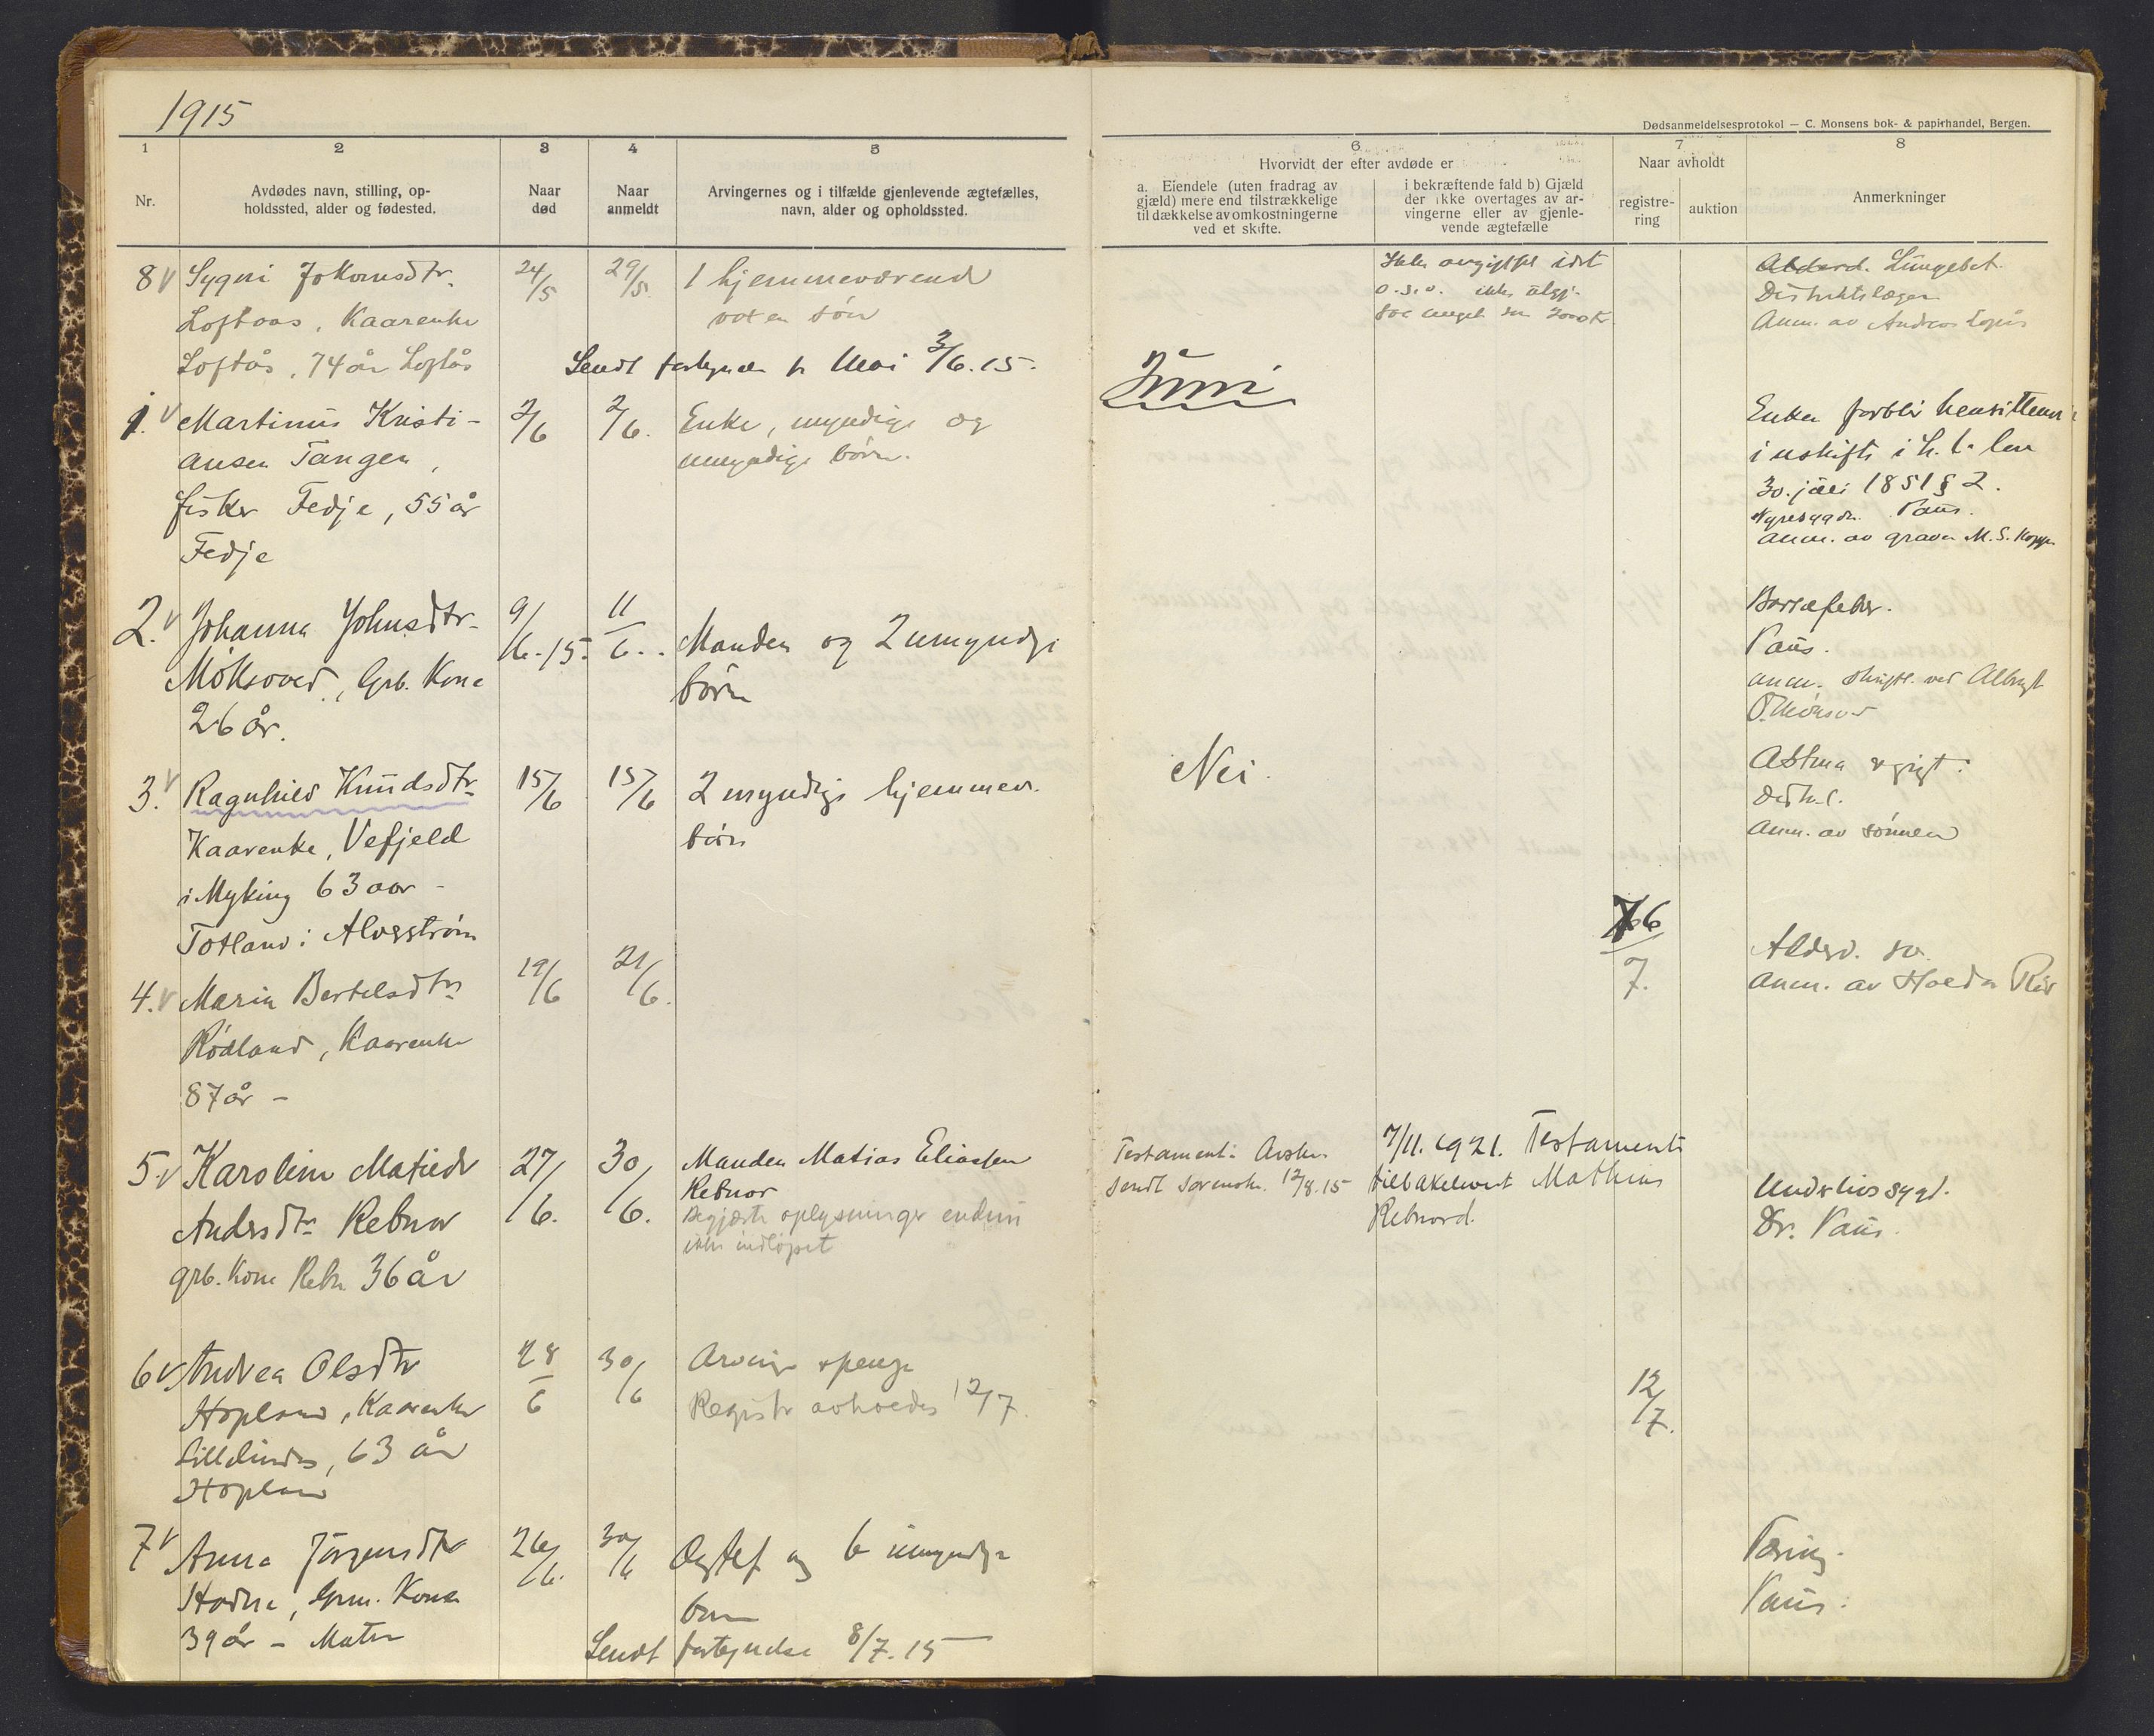 1915
Dødsanmeldelsesprotokol — C. Monsens bok- & papirhandel, Bergen.
1 2 3 4 5
Nr.
Avdødes navn, stilling, op-
holdssted, alder og fødested.
Naar
død
Naar
anmeldt
Arvingernes og i tilfælde gjenlevende ægtefælles,
navn, alder og opholdssted.
6 7 8
Hvorvidt der efter avdøde er
a. Eiendele (uten fradrag av
gjæld) mere end tilstrækkelige
til dækkelse av omkostningerne
ved et skifte.
i bekræftende fald b) Gjæld
der ikke overtages av ar-
vingerne eller av gjenle-
vende ægtefælle
Naar avholdt
registre-
ring
auktion
Anmerkninger
8 Sygni
Loftaas, Kaarenke
Loftås, 74 år Loftås
24/5
29/5
1 hjemmeværende
voxen søn
Ikke
o.s.v. ikke
Alderd. Lungebet.
Distriktslægen
Anm. av Andreas
Sendt fortegnelse Mai 3/6.15.
Juni
1. Martinus Kristi-
ansen Tangen,
fisker Fedje, 55 år
Fedje
2/6
2/6.
Enke, myndige og
umyndige børn.
Enken forblir hensittende
i uskifte i h. t. lov
30. juli 1851 § 2.
Paus.
anm. av graver M. S.
2. Johanna Johnsdtr.
Grb. Kone
26 år.
9/6.15.
11/6.
Manden og 2 umyndige
børn
Barselfeber.
Paus.
anm. skriftl. ved
3. Ragnhild Knudsdtr.
Kaarenke, Vefjeld
i Myking 63 aar -
Totland i Alverstrøm
15/6
15/6
2 myndige hjemmev.
børn
Nei.
Astma & gigt.
Anm. av sønnen
4. Marin Bertelsdtr.
Rødland, Kaarenke
87 år -
19/6
21/6.
6/7.
Alderd.
anm. av
5. Karoline Matilde
Andersdtr. Rebnor
grb. Kone Rebn 36 år
27/6.
30/6.
Manden Matias Eliassen
Rebnor
Begjærte oplysninger endnu
ikke indløpet
Testament. Avskr.
sendt sorensk. 12/8.15
7/11.1921. Testament
tilbakelevert Mathias
Rebnord.
Underlivssygd.
Dr. Paus.
6 Andrea Olsdtr
Hopland, Kaarenke
Lillelindås, 63 år
Hopland
28/6
30/6
Registr avholdes 12/7.
12/7.
7 Anna Jørgensdtr
Grm. Kone
39 år -
26/6.
30/6
Ægtef og 6 umyndige
børn
Tæring.
Paus.
Sendt fortegnelse 8/7.15